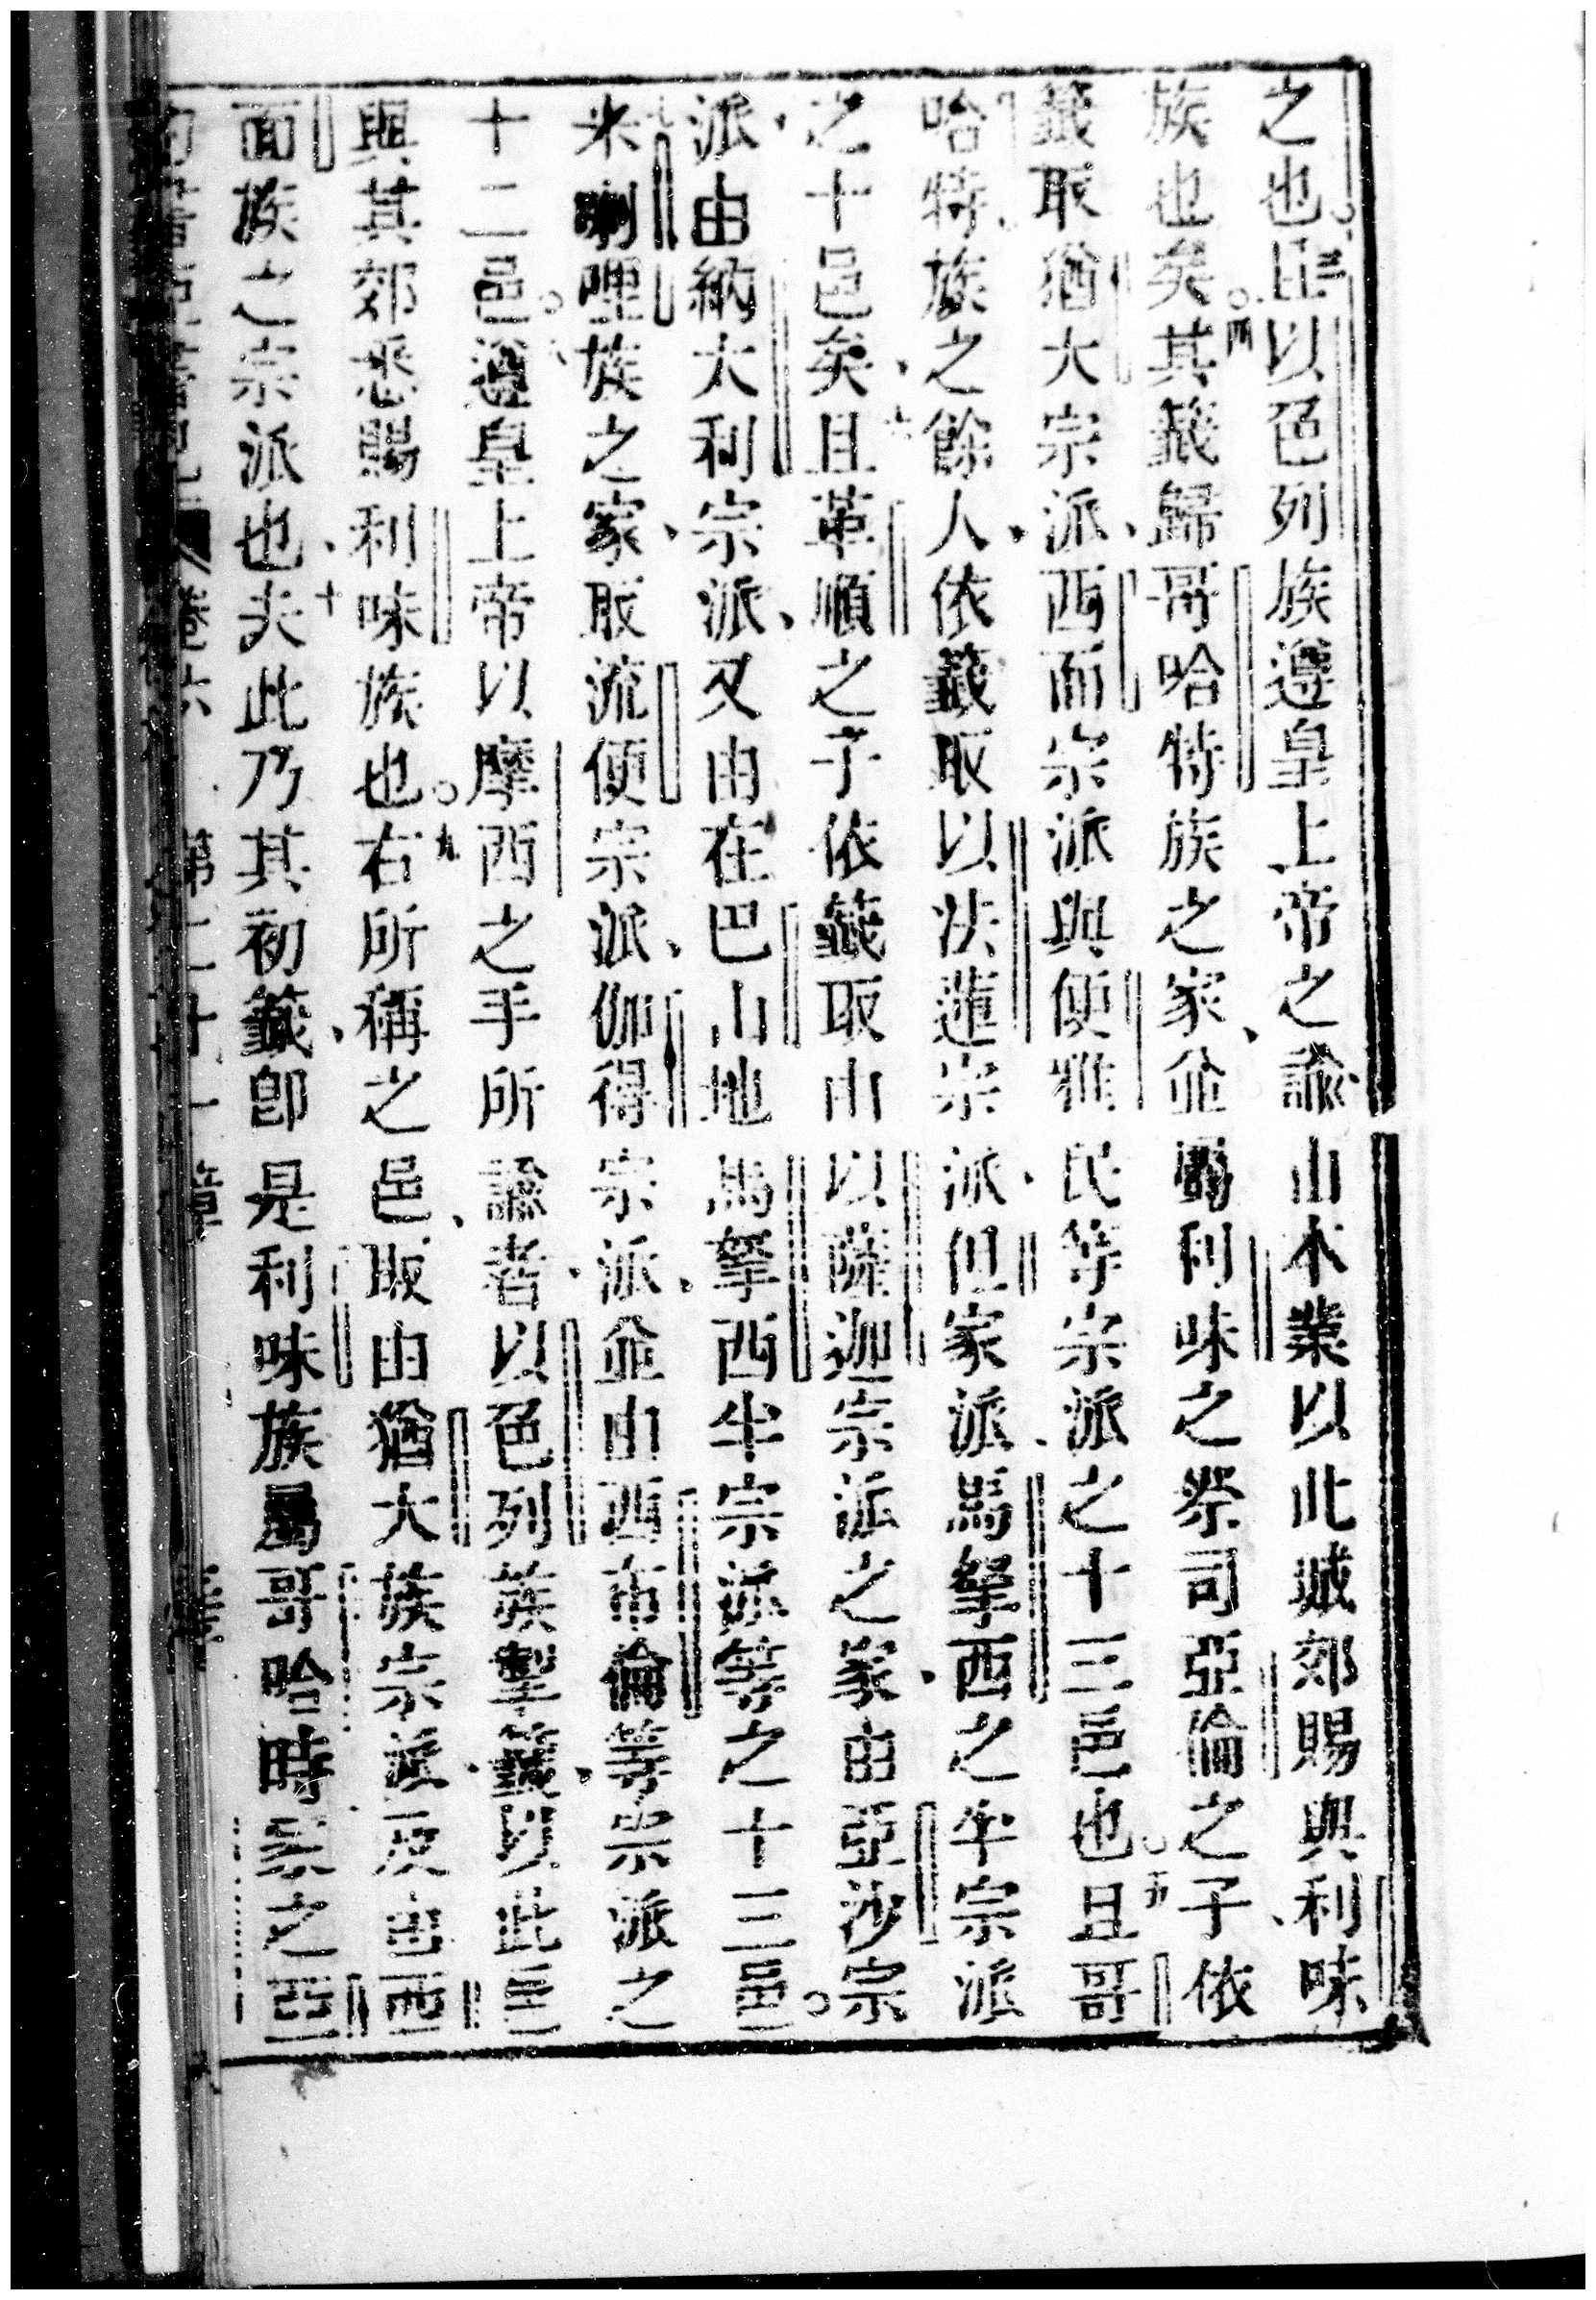 之也。三以色列族遵皇上帝之諭、由本業以此城郊賜與利味
族也矣。四其籤歸哥哈特族之家、並屬利味之祭司亞倫之子、依
籤取猶大宗派、西面宗派與便雅民等宗派之十三邑也。五且哥
哈特族之餘人、依籤取以法蓮宗派、但家派、馬拏西之半宗派
之十邑矣、六且革順之子依籤取由以薩迦宗派之家、由亞沙宗
派、由納大利宗派、又由在巴山地馬拏西半宗派等之十三邑。
七米喇哩族之家、取流便宗派、伽得宗派、並由西布倫等宗派之
十二邑。八遵皇上帝以摩西之手所諭者、以色列族掣籤、以此邑
與其郊悉賜利味族也。九右所稱之邑、取由猶大族宗派、及由西
面族之宗派也、十夫此乃其初籤、即是利味族屬哥哈時家之亞
卷六 第二十一章